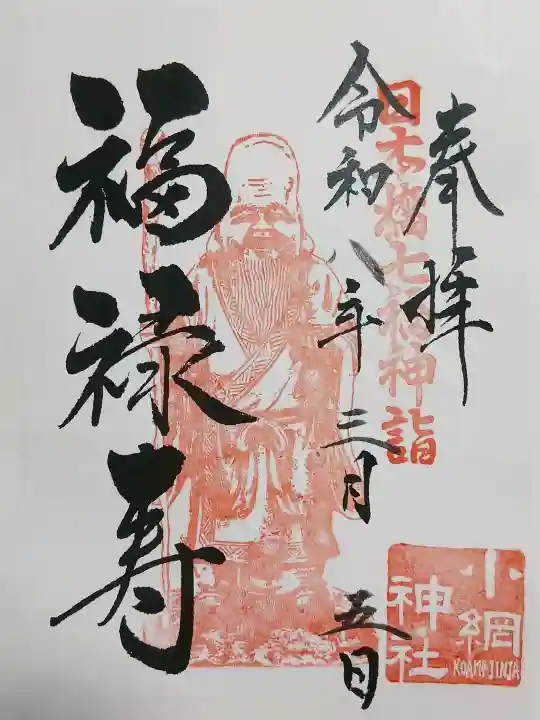 奉拝
日本橋七福神詣
令和八年三月五日
福禄寿
小網
神社
KOAMIJINJA